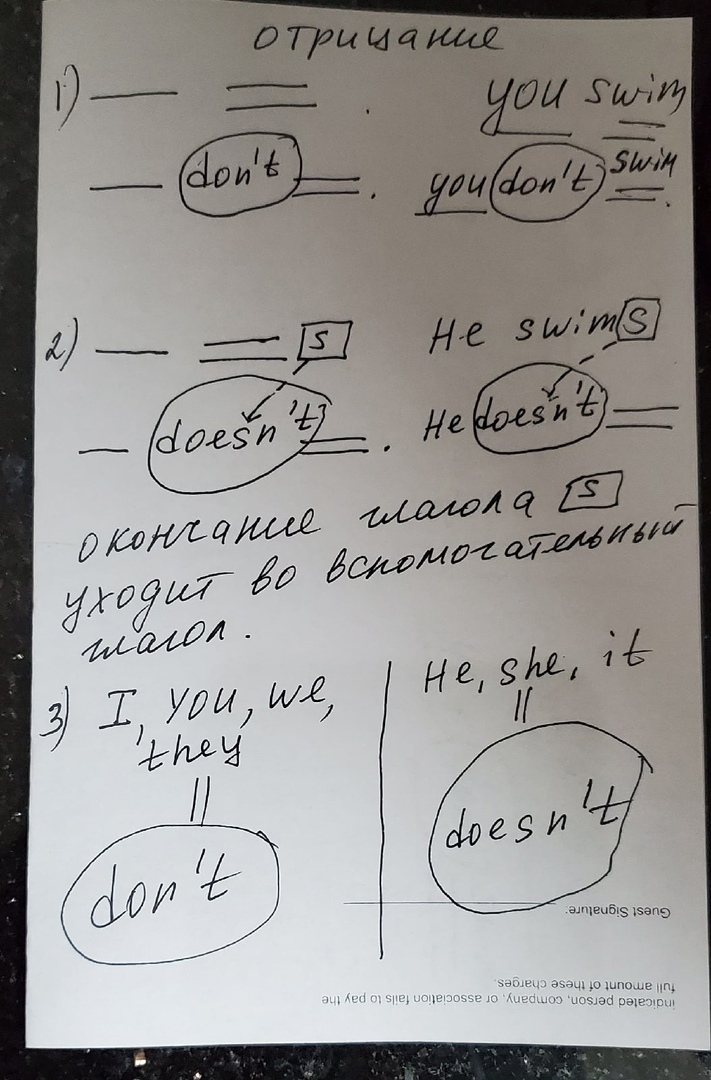 отрицание
1) . you swim
don't . you don't swim .
2) s He swims
doesn't . He doesn't
окончание глагола s
уходит во вспомогательный
глагол.
3) I, you, we,
they
||
don't
He, she, it
||
doesn't
Guest Signature:
indicated person, company, or association fails to pay the
full amount of these charges.